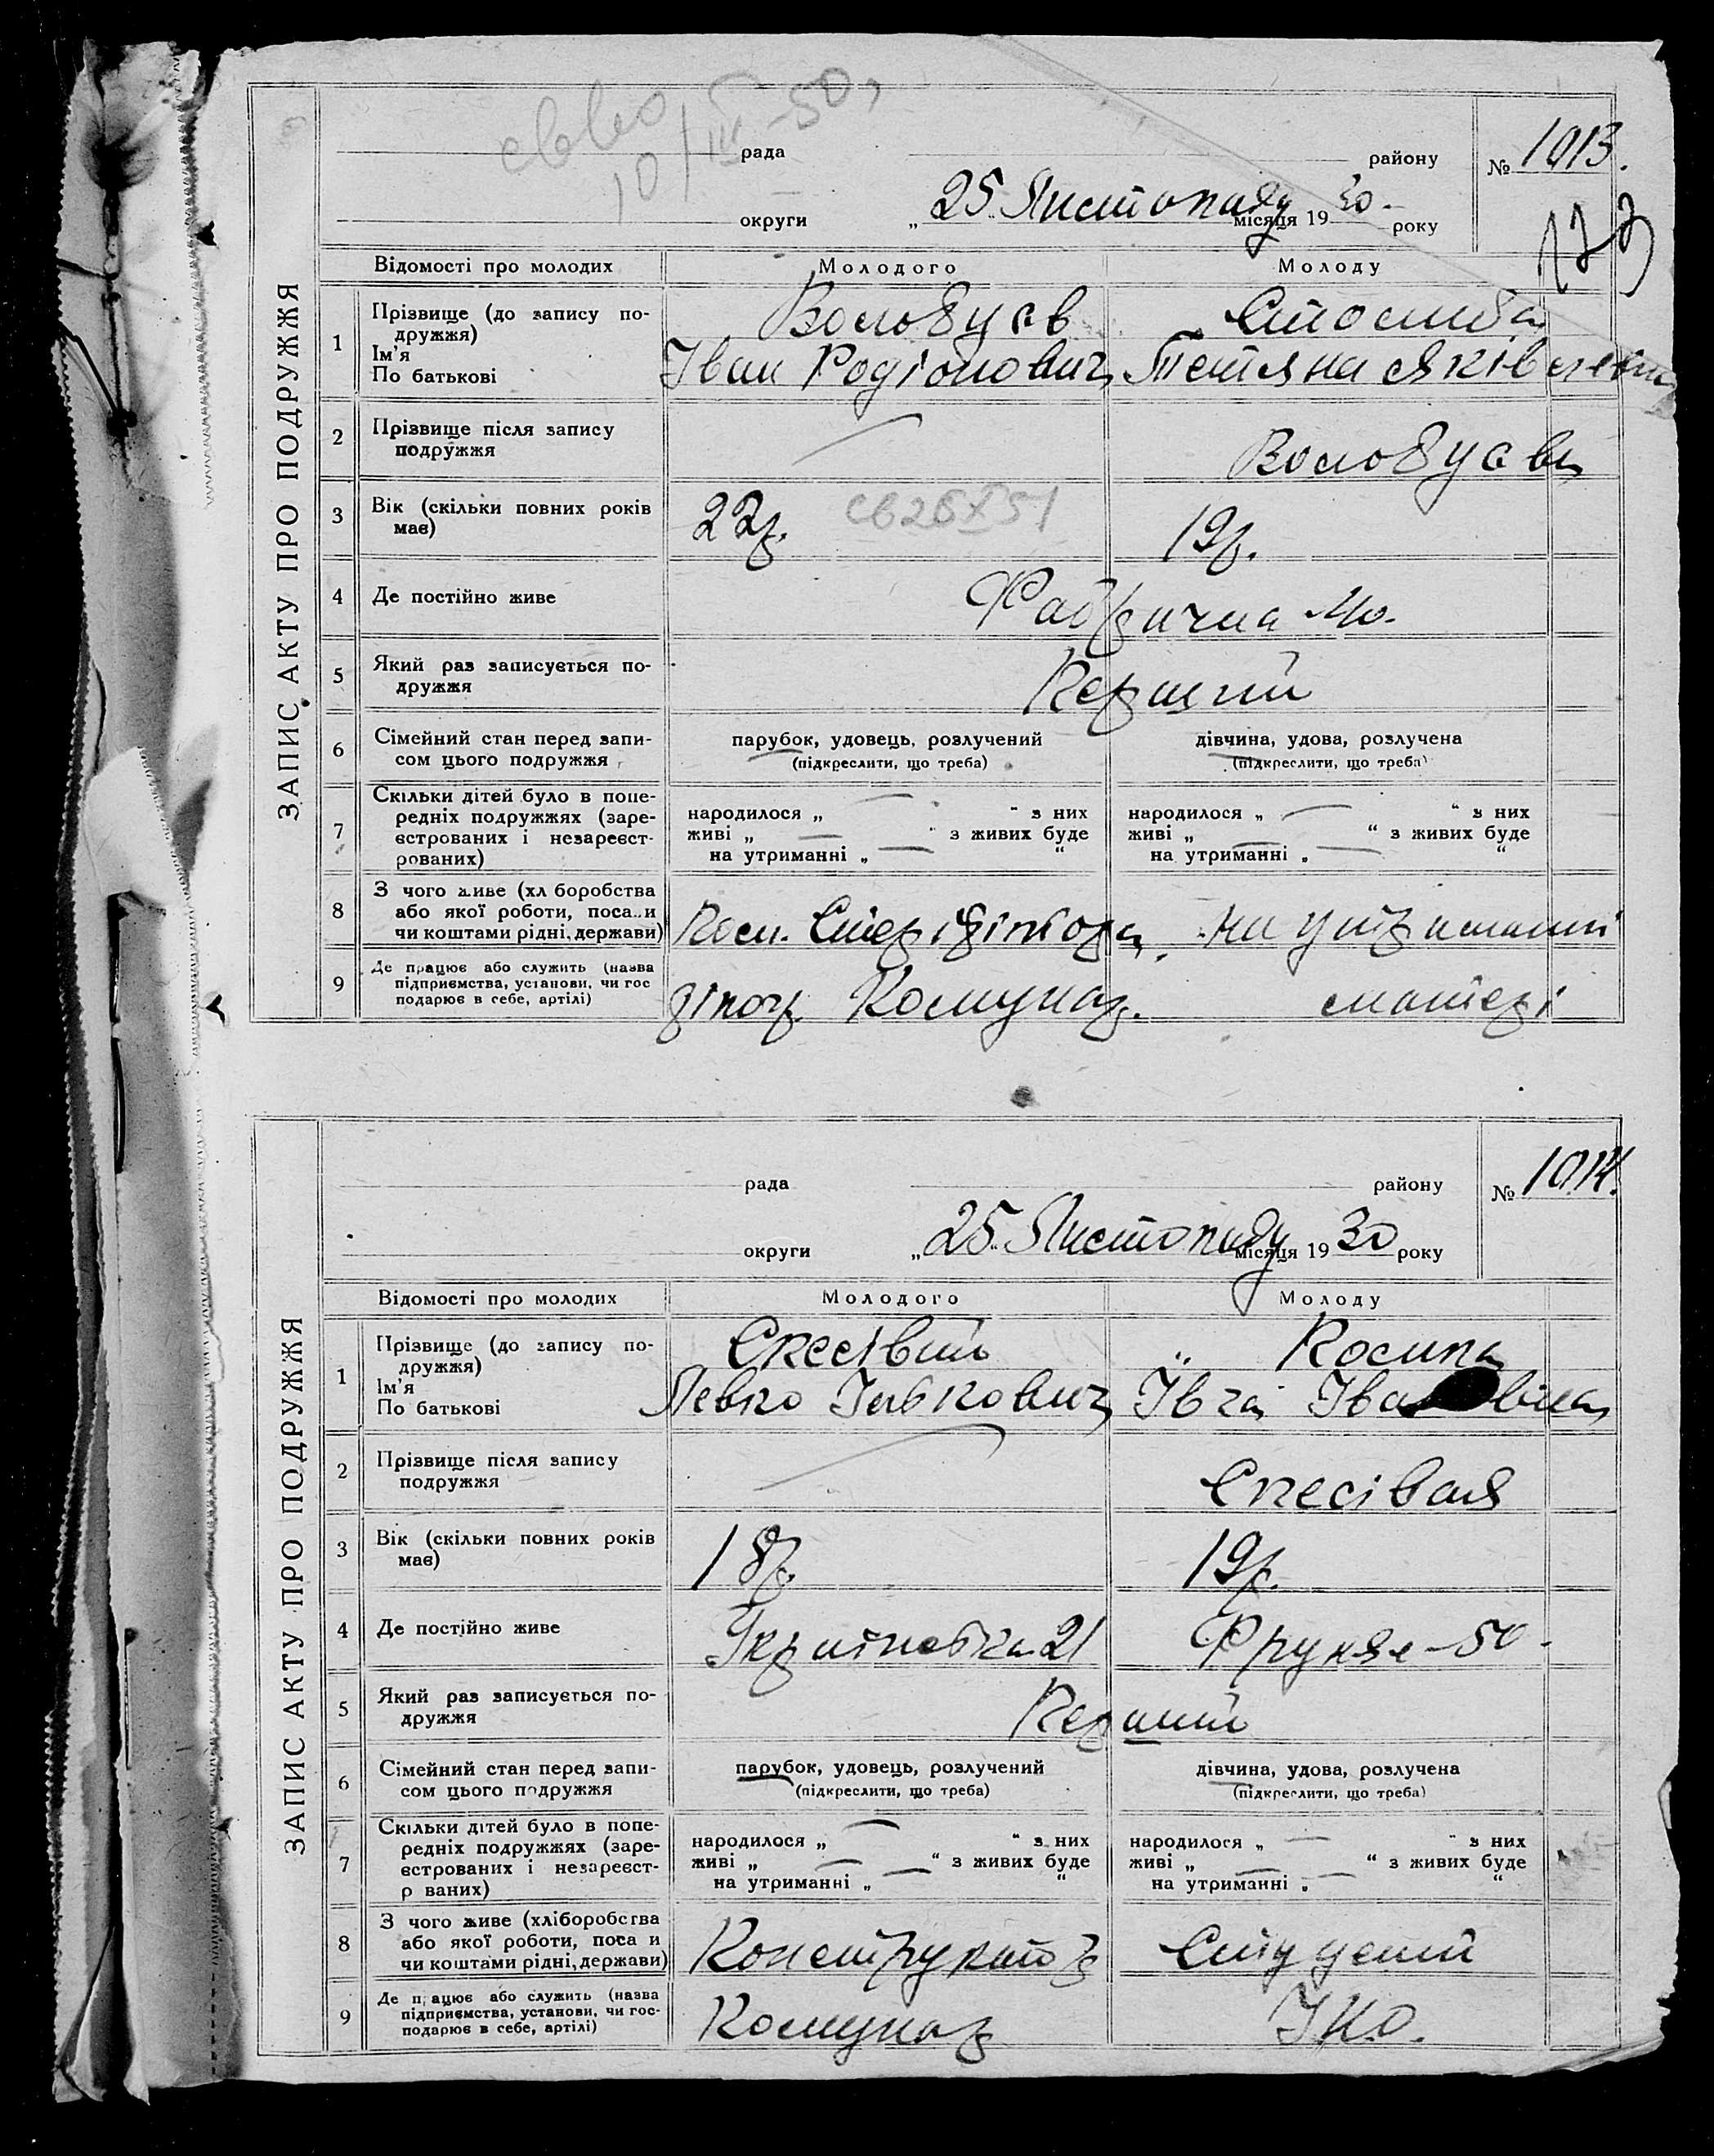 ЗАПИС АКТУ ПРО ПОДРУЖЖЯ
10/III-50,
рада
району
№ 1013.
округи
„25" Листопаду місяця 1930 року
173
Відомості про молодих
Молодого
Молоду
1
Прізвище (до запису по-
дружжя)
Ім'я
По батькові
Волобуєв
Іван Родіонович
Тетяна Яківлевна
2
Прізвище після запису
подружжя
Волобуєва
3
Вік (скільки повних років
має)
22р.
св 26 X 51
19р.
4
Де постійно живе
Фабрична 40.
5
Який раз записується по-
дружжя
Перший
6
Сімейний стан перед запи-
сом цього подружжя
парубок, удовець, розлучений
(підкреслити, що треба)
дівчина, удова, розлучена
(підкреслити, що треба)
7
Скільки дітей було в попе-
редніх подружжях (заре-
єстрованих і незареєст-
рованих)
народилося „ — " з них
живі „ — " з живих буде
на утриманні „ — "
народилося „ — " з них
живі „ — " з живих буде
на утриманні „ — "
8
З чого живе (хл боробства
або якої роботи, поса..и
чи коштами рідні, держави)
на утриманні
9
Де працює або служить (назва
підприємства, установи, чи гос
подарює в себе, артілі)
Комунар.
матері
ЗАПИС АКТУ ПРО ПОДРУЖЖЯ
рада
району
№ 1014.
округи
„25" Листопаду місяця 1930 року
Відомості про молодих
Молодого
Молоду
1
Прізвище (до запису по-
дружжя)
Ім'я
По батькові
Спесівий
Косипа
Левко Івкович
Івга Іва
2
Прізвище після запису
подружжя
Спесівая
3
Вік (скільки повних років
має)
18р.
19р.
4
Де постійно живе
Українська 21
Фрунзе - 50.
5
Який раз записується по-
дружжя
Перший
6
Сімейний стан перед запи-
сом цього подружжя
парубок, удовець, розлучений
(підкреслити, що треба)
дівчина, удова, розлучена
(підкреслити, що треба)
7
Скільки дітей було в попе-
редніх подружжях (заре-
єстрованих і незареєст-
р ваних)
народилося „ — " з них
живі „ — " з живих буде
на утриманні „ — "
народилося „ — " з них
живі „ — " з живих буде
на утриманні „ — "
8
З чого живе (хліборобства
або якої роботи, поса и
чи коштами рідні, держави)
Конструктор
Студент
9
Де працює або служить (назва
підприємства, установи, чи гос-
подарює в себе, артілі)
Комунар
І.Н.О.